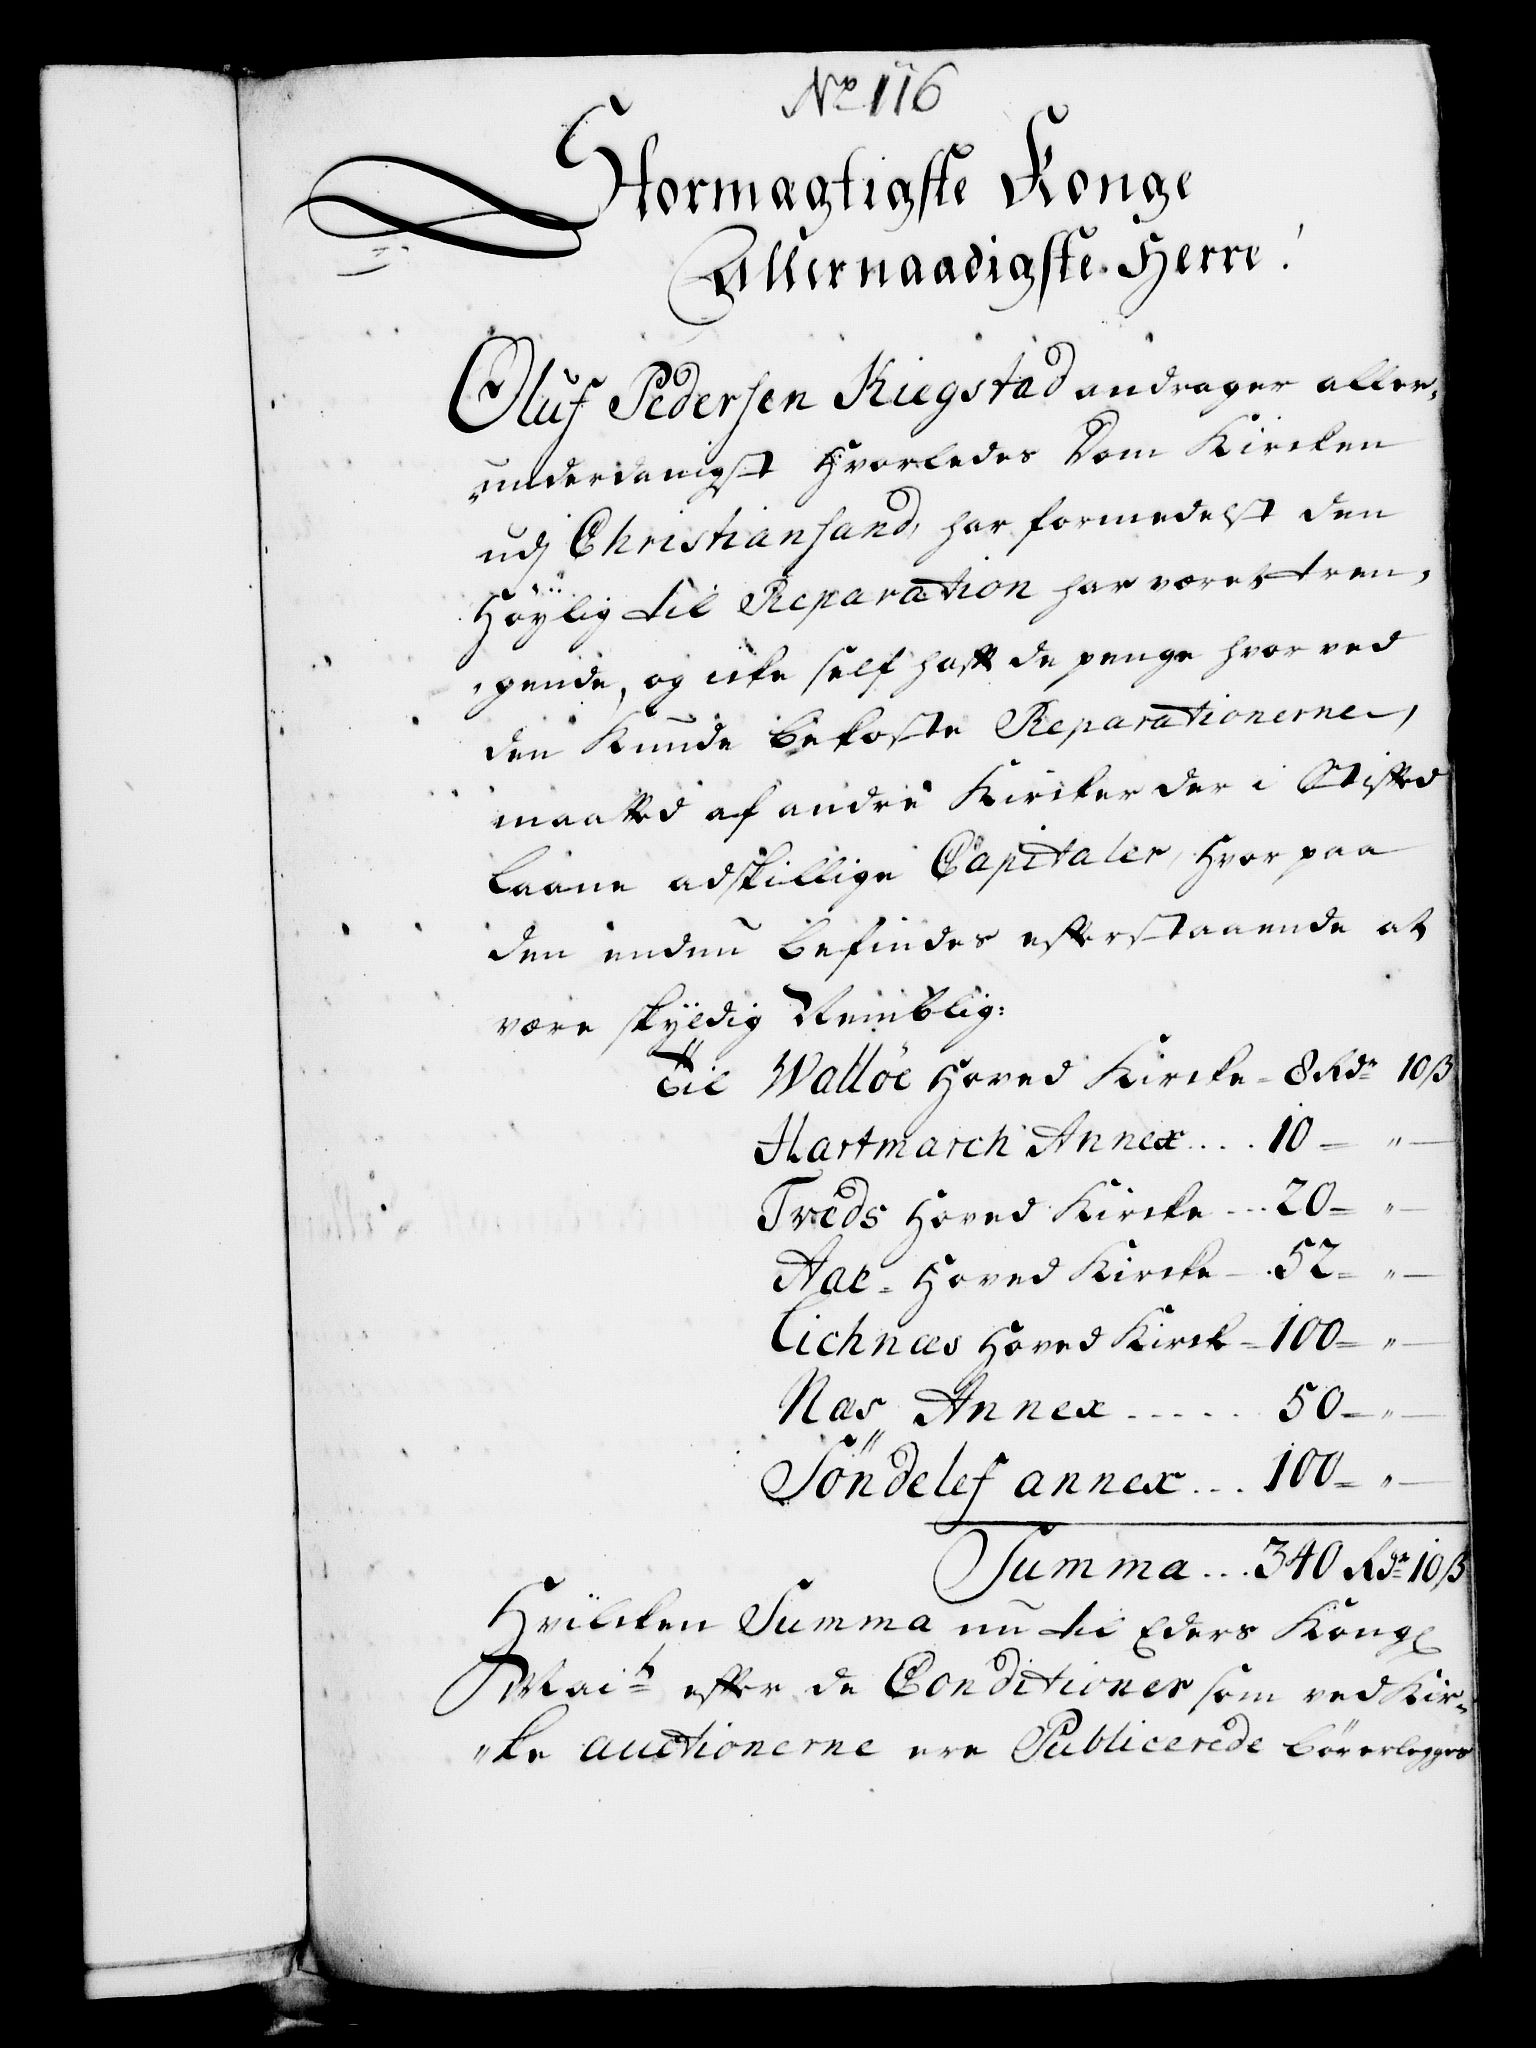 No 116
Stormægtigste Konge
Allernaadigste Herre!
Oluf Pedersen Kiegstad andrager aller,
underdanigst hvorledes Dom Kircken
udj Christiansand, har formedelst den
Höÿlig til Reparation har været tren,
,gende, og icke self hafft de penge hvor ved
den kunde bekoste Reparationerne,
maatted af andre Kircker der i Stifted
laane adskillige Capitaler, hvor paa
den endnu befindes efterstaaende at
være skÿldig Nemblig:
Til Walløe Hoved Kircke - 8 Rdr 10 ß
Hartmarch Annex .... 10 - " -
Treds Hoved Kircke ... 20 - " -
Aae - Hoved Kircke - . 52 - " -
Lichnæs Hoved Kirck - 100 - " -
Næs Annex ..... 50 - " -
Söndelef annex ... 100 - " -
Summa ... 340 Rdr 10 ß
Hvilcken Summa nu til Eders Kongl
Maits effter de Conditioner som ved Kir-
"ke auctionerne ere Publicerede bör erlegges